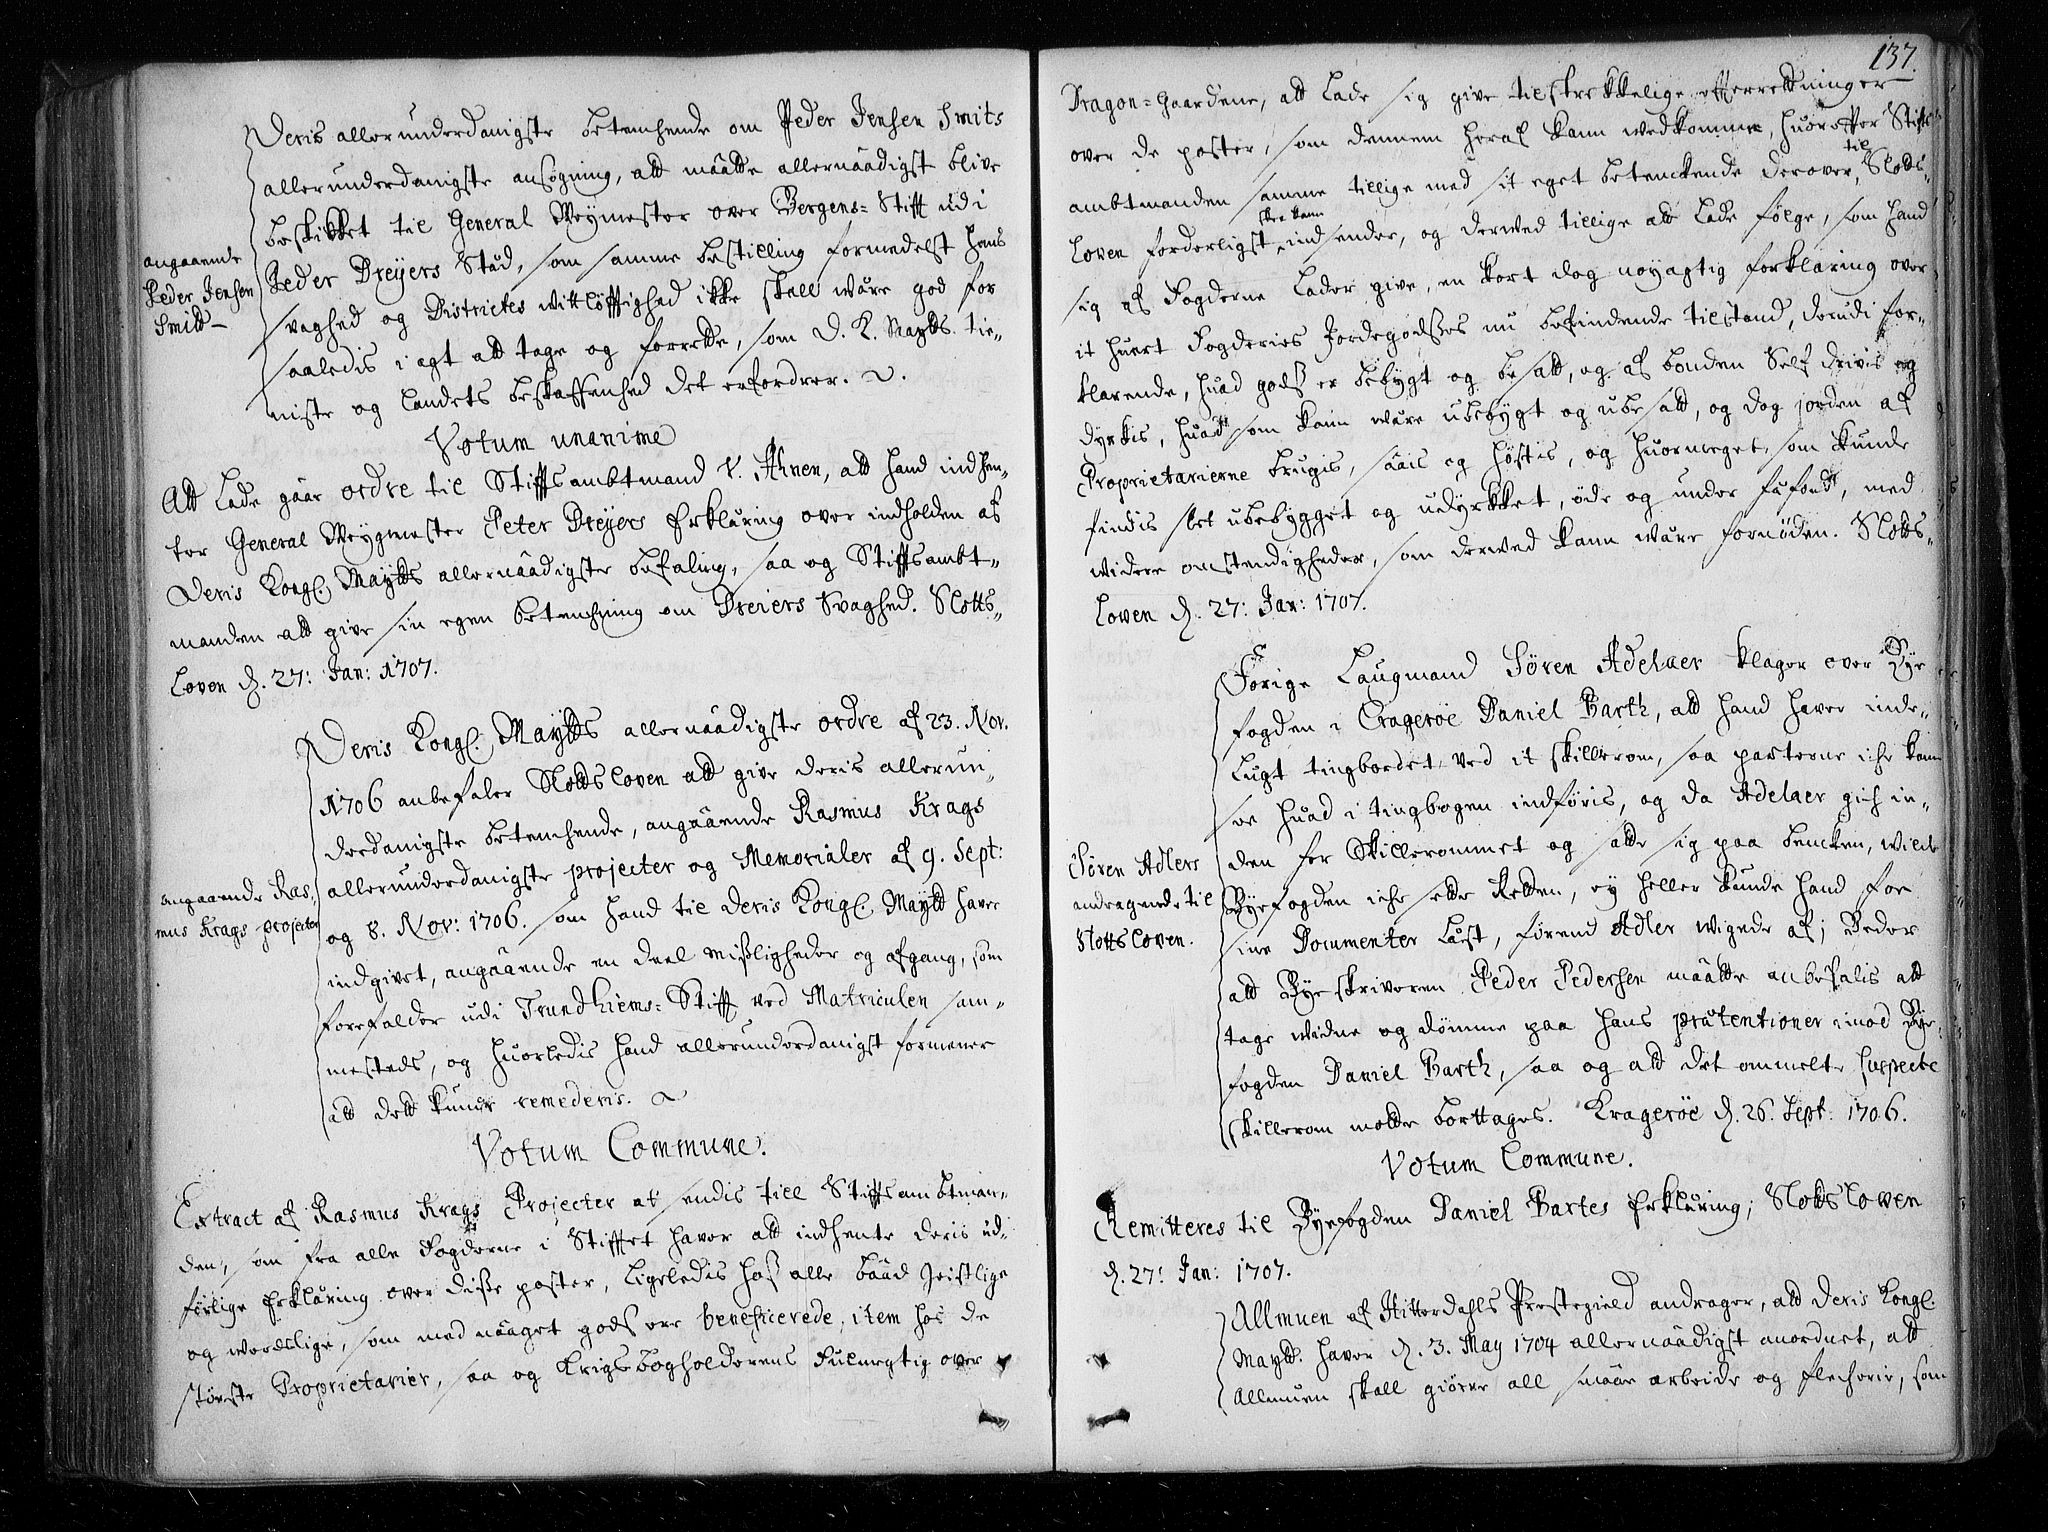 Deris allerunderdanigste betenchende om Peder Jensen Smits
allerunderdanigste ansøgning, att mååtte allernåådigst blive
beskikket til General Weymester over Bergens-Stifft udi
angaaende
Peder Jensen
Smitt-
Peder Dreyers Stæd, som samme bestilling formedelst hans
svaghed og Districtes wittløfftighed ikke skall wäre god for
saaledis i agt att tage og forrette, som D. K. Maytts. tie-
niste og Landets beskaffenhed det erfordrer.
Votum unanime
Att lade gååe ordre til Stifftsambtmand v. Ahnen, att hand indhen-
ter General Weygmester Peter Dreyers Erkläring over indholden af
Deris Kongl. Maytts allernåådigste befaling, saa og Stifftsambt-
manden att give sin egen betenchning om Dreiers Svaghed. Slotts-
Loven d. 27: Jan: 1707.
Deris Kongl. Maytts allernåådigste ordre af 23. Nov.
1706 anbefaler Slottsloven att give deris allerun-
derdanigste betenchende, angåående Rasmus Krags
allerunderdanigste projecter og Memorialer af 9. Sept:
angaaende Ras-
mus Krags projecter
og 8. Nov: 1706. som hand til Deris Kongl. Maytt haver
indgivet, angåående en deel mißligheder og afgang, som
forefalder udi Trundhiems-Stifft ved Matriculen sam-
mesteds, og huorledis hand allerunderdanigst formener
att dett kunde remederis.
Votum Commune.
Extract af Rasmus Krags Projecter at sendis till Stifftsambtman-
den, som fra alle Fogderne i Stifftet haver att indhente deris ud-
førlige Erkläring over diße poster, ligeledis hoß alle bååd Geistlige
og wordslige, som med nååget gods ere beneficerede, item hos de
største Proprietarier, saa og Krigsbogholderens Fulmegtig over
137.
Dragon-Gaardene, att lade sig give tilstrekkelige efterrettninger
over de poster, som dennem heraf kann wedkomme, huorefter Stiffts-
ambtmanden samme tillige med sit eget betenckende derover, til Slotts-
Loven forderligst skee kann indsender, og derwed tillige att lade følge, som hand
sig af Fogderne lader give, en kort dog nøyagtig forklaring over
it huert Fogderies Jordegodßes nu befindende tilstand, derudi for-
klarende, huad godß er bebygt og besatt, og af bonden Self drivis og
dyrkis, huad som kann wäre ubebygt og ubesatt, og dog jorden af
Proprietarierne brugis, sååis og høstis, og huormeget, som kunde
findis slet ubebygget og udyrkket, øde og under fäfoed, med
widere omstendigheder, som derwed kann wäre fornøden. Slotts-
Loven d. 27: Jan: 1707.
Forige Laugmand Søren Adelaer klager over Bye
fogden i Cragerøe Daniel Barth, att hand haver inde-
lugt tingbordet ved it skillerom, saa parterne iche kann
see huad i tingbogen indføris, og da Adelaer gich in-
den for Skillerommet og satte sig paa bencken, wilde
Søren Adlers
andragende til
Slottsloven.
Byefogden iche sette Retten, ey heller kunde hand for
sine Documenter läst, førend Adler wigede af; Beder
att Byeskriveren Peder Pedersen mååtte anbefalis att
tage widne og dømme paa hans prætentioner imod Bye-
fogden Daniel Barth, saa og att det ommelte suspecte
skillerom motte borttages. Kragerøe d. 26. Sept: 1706.
Votum Commune.
Remitteres til Byefogden Daniel Bartes Erkläring; Slottsloven
d. 27: Jan: 1707.
Allmuen af Hitterdahls Prestegield andrager, att Deris Kongl.
Maytt. haver d. 3. May 1704 allernåådigst anordnet, att
Allmuen skall giøre all smååe arbeide og flechverie, som